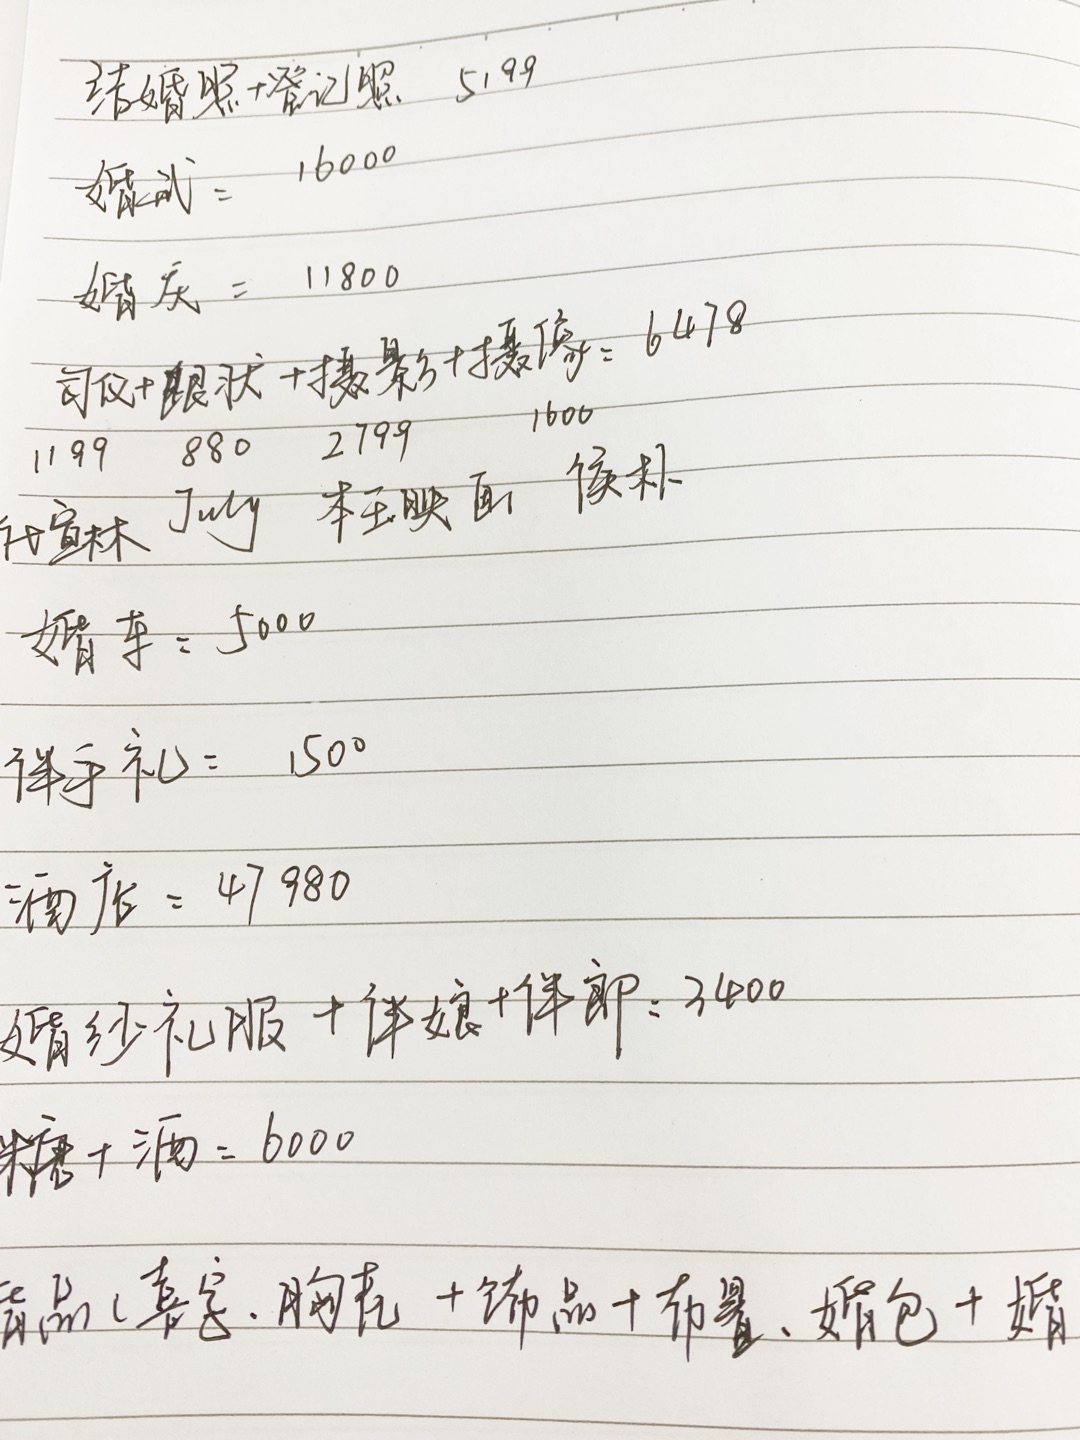 结婚照+登记照 5199
婚礼= 16000
婚庆= 11800
司仪+跟妆+摄影+摄像=6478
1199 880 2799 1600
代宣林 July 本王映画 侯朴
婚车=5000
伴手礼= 1500
酒店=47980
婚纱礼服+伴娘+伴郎=3400
糖+酒=6000
婚品(喜字、胸花+饰品+布置、婚包+婚